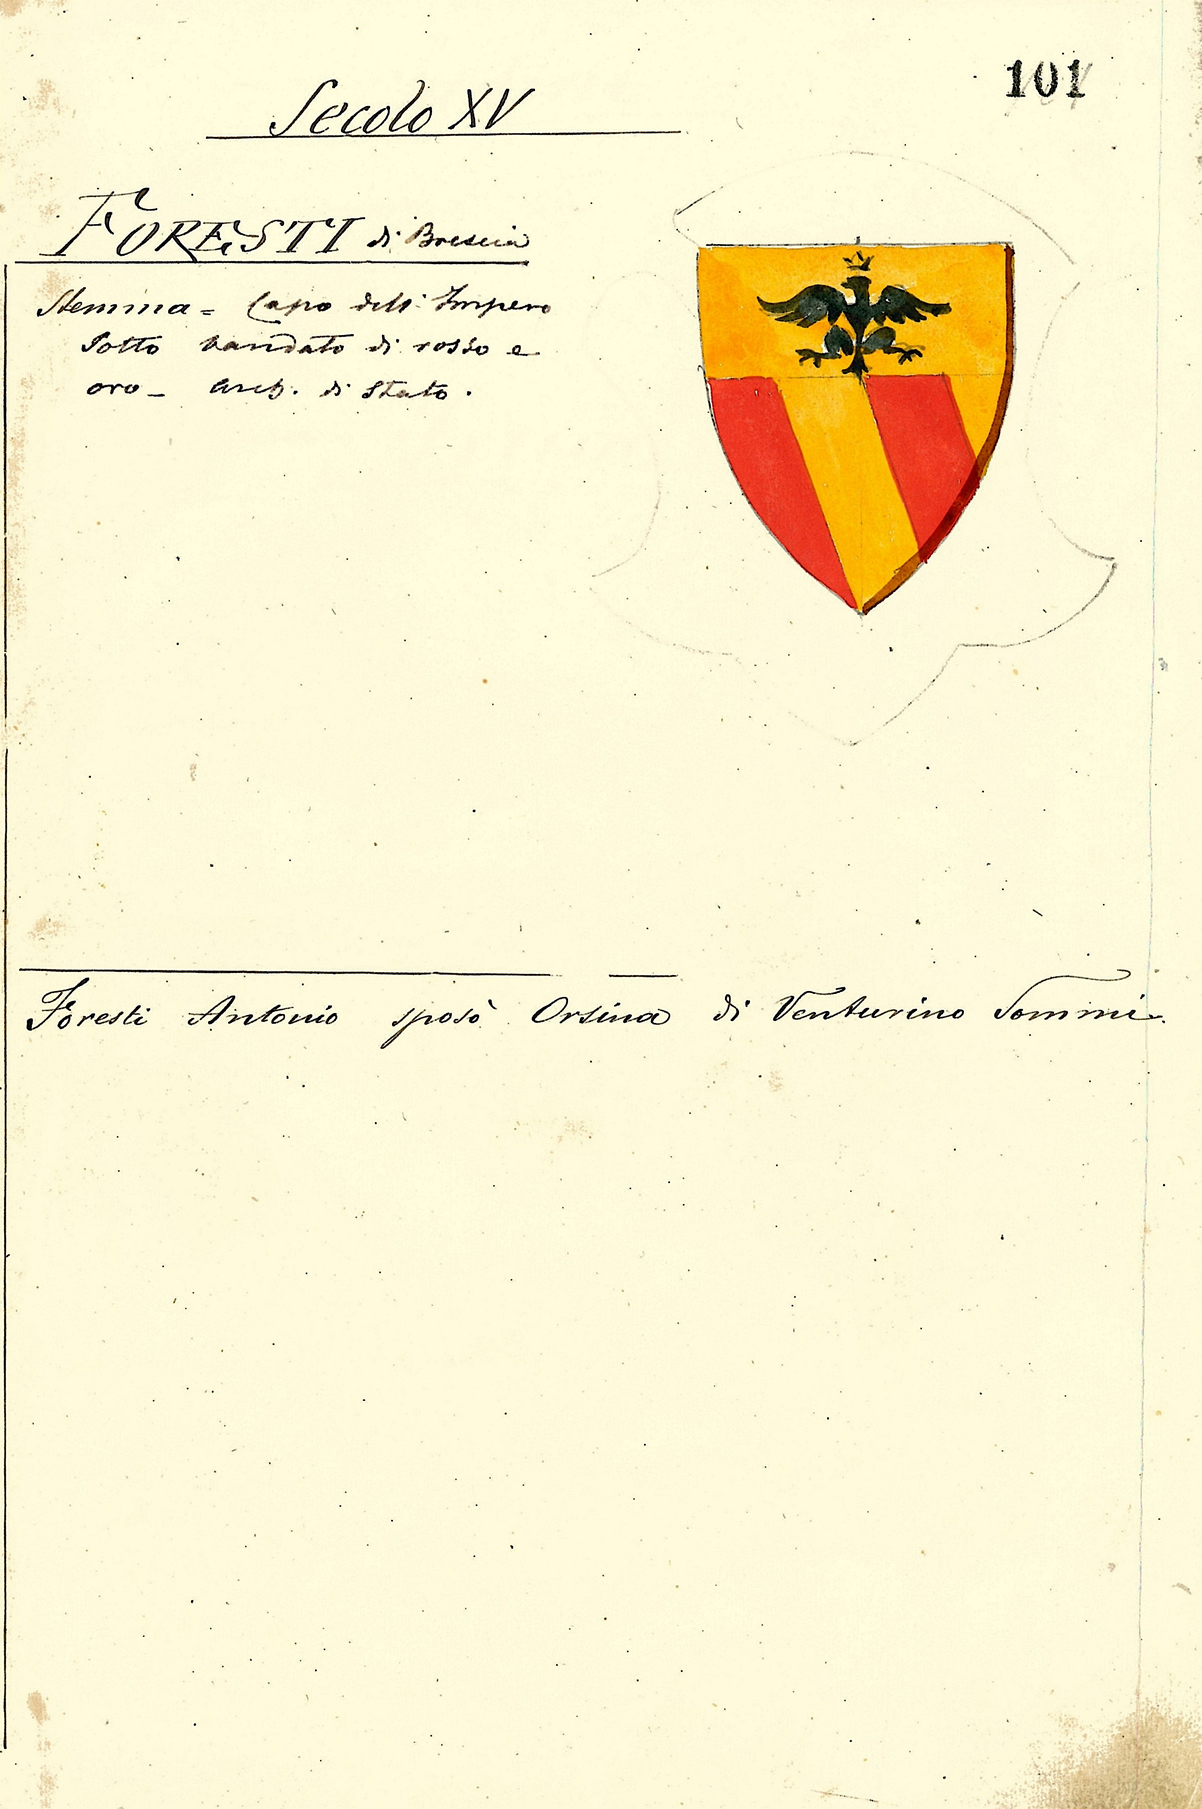 101
Secolo XV
FORESTI di Brescia
Stemma = Capo dell' Impero
Sotto bandato di rosso e
oro - Arch. di Stato.
Foresti Antonio sposò Orsina di Venturino Sommi.